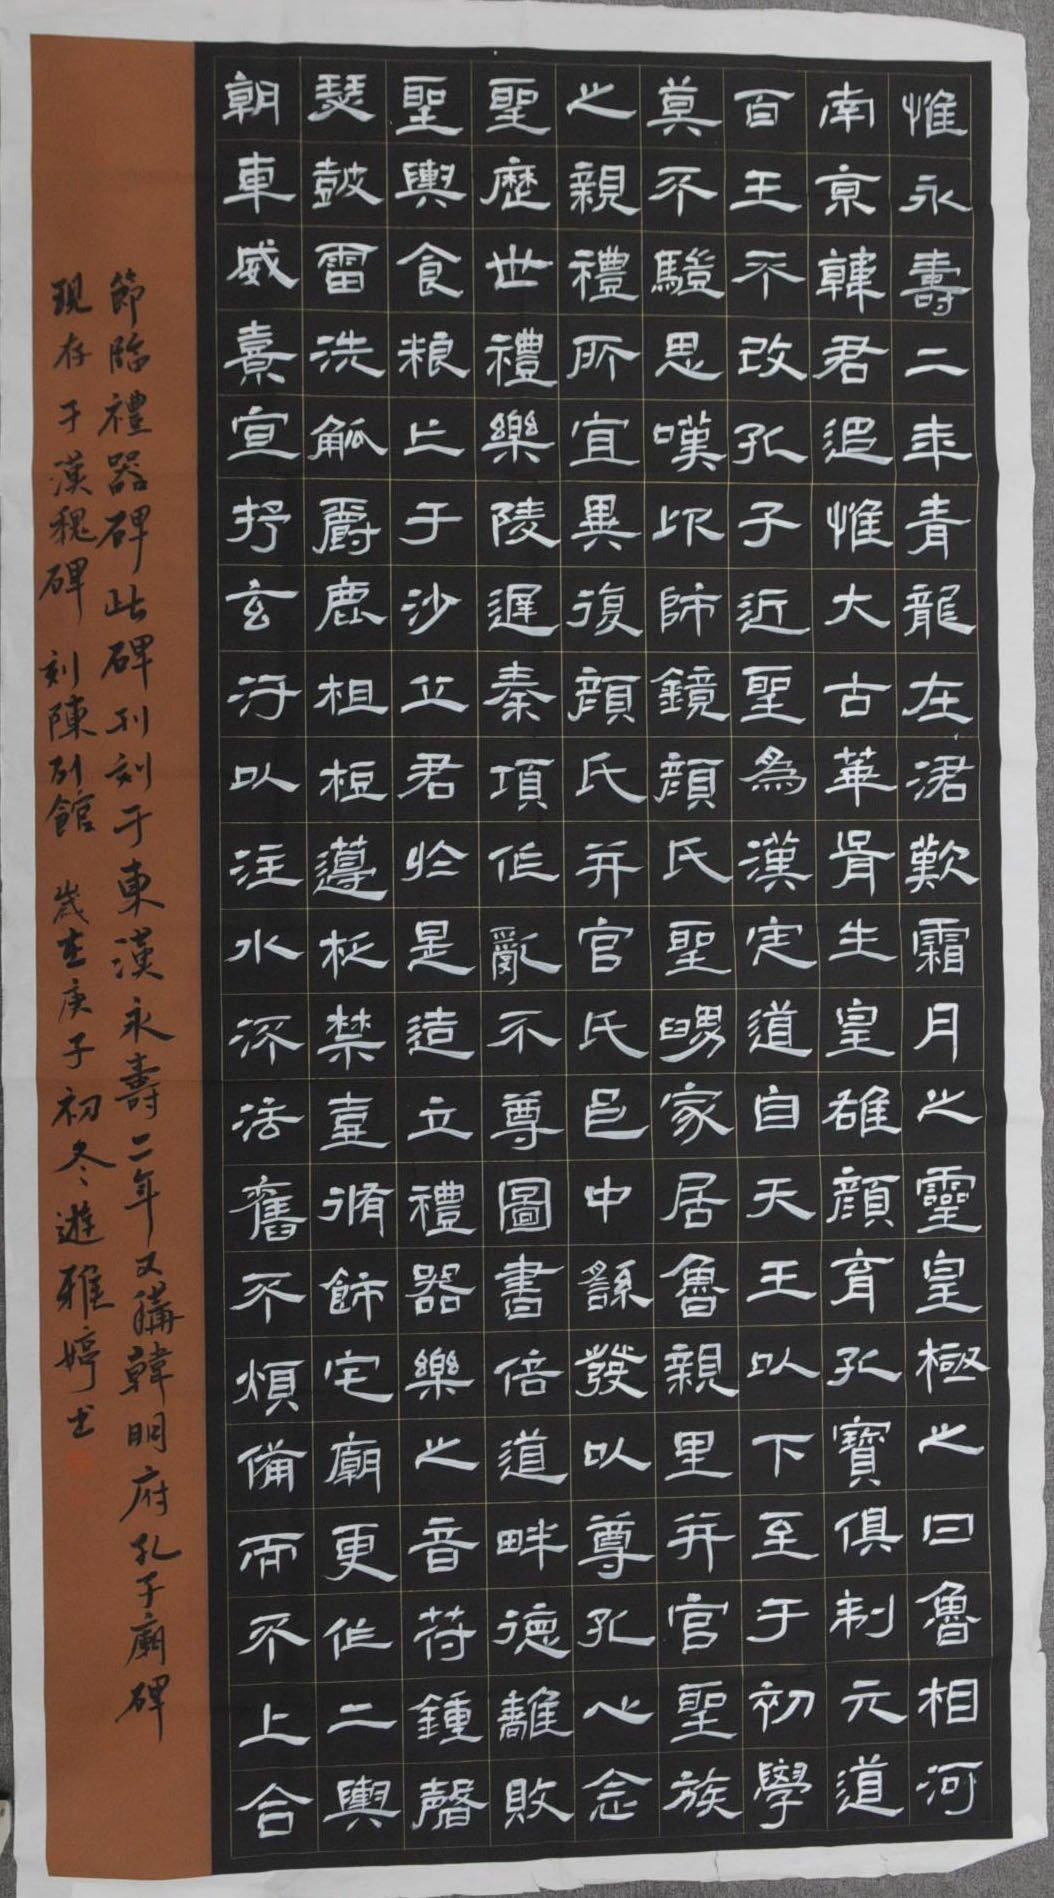 惟永壽二年青龍在涒歎霜月之靈皇極之日魯相河
南京韓君追惟大古華胥生皇雄顏育孔寶俱制元道
百王不改孔子近聖為漢定道自天王以下至于初學
莫不驥思嘆卬師鏡顏氏聖舅家居魯親里并官聖族
之親禮所宜異復顏氏并官氏邑中繇發以尊孔心念
聖歷世禮樂陵遲秦項作亂不尊圖書倍道畔德離敗
聖輿食粮亡于沙丘君於是造立禮器樂之音符鍾磬
瑟鼓雷洗觚爵鹿柤梪籩柉禁壺脩飾宅廟更作二輿
朝車威熹宣抒玄汙以注水流法舊不煩備而不上合
節臨禮器碑此碑刊刻于東漢永壽二年又稱韓明府孔子廟碑
現存于漢魏碑刻陳列館 歲在庚子初冬遊雅婷書